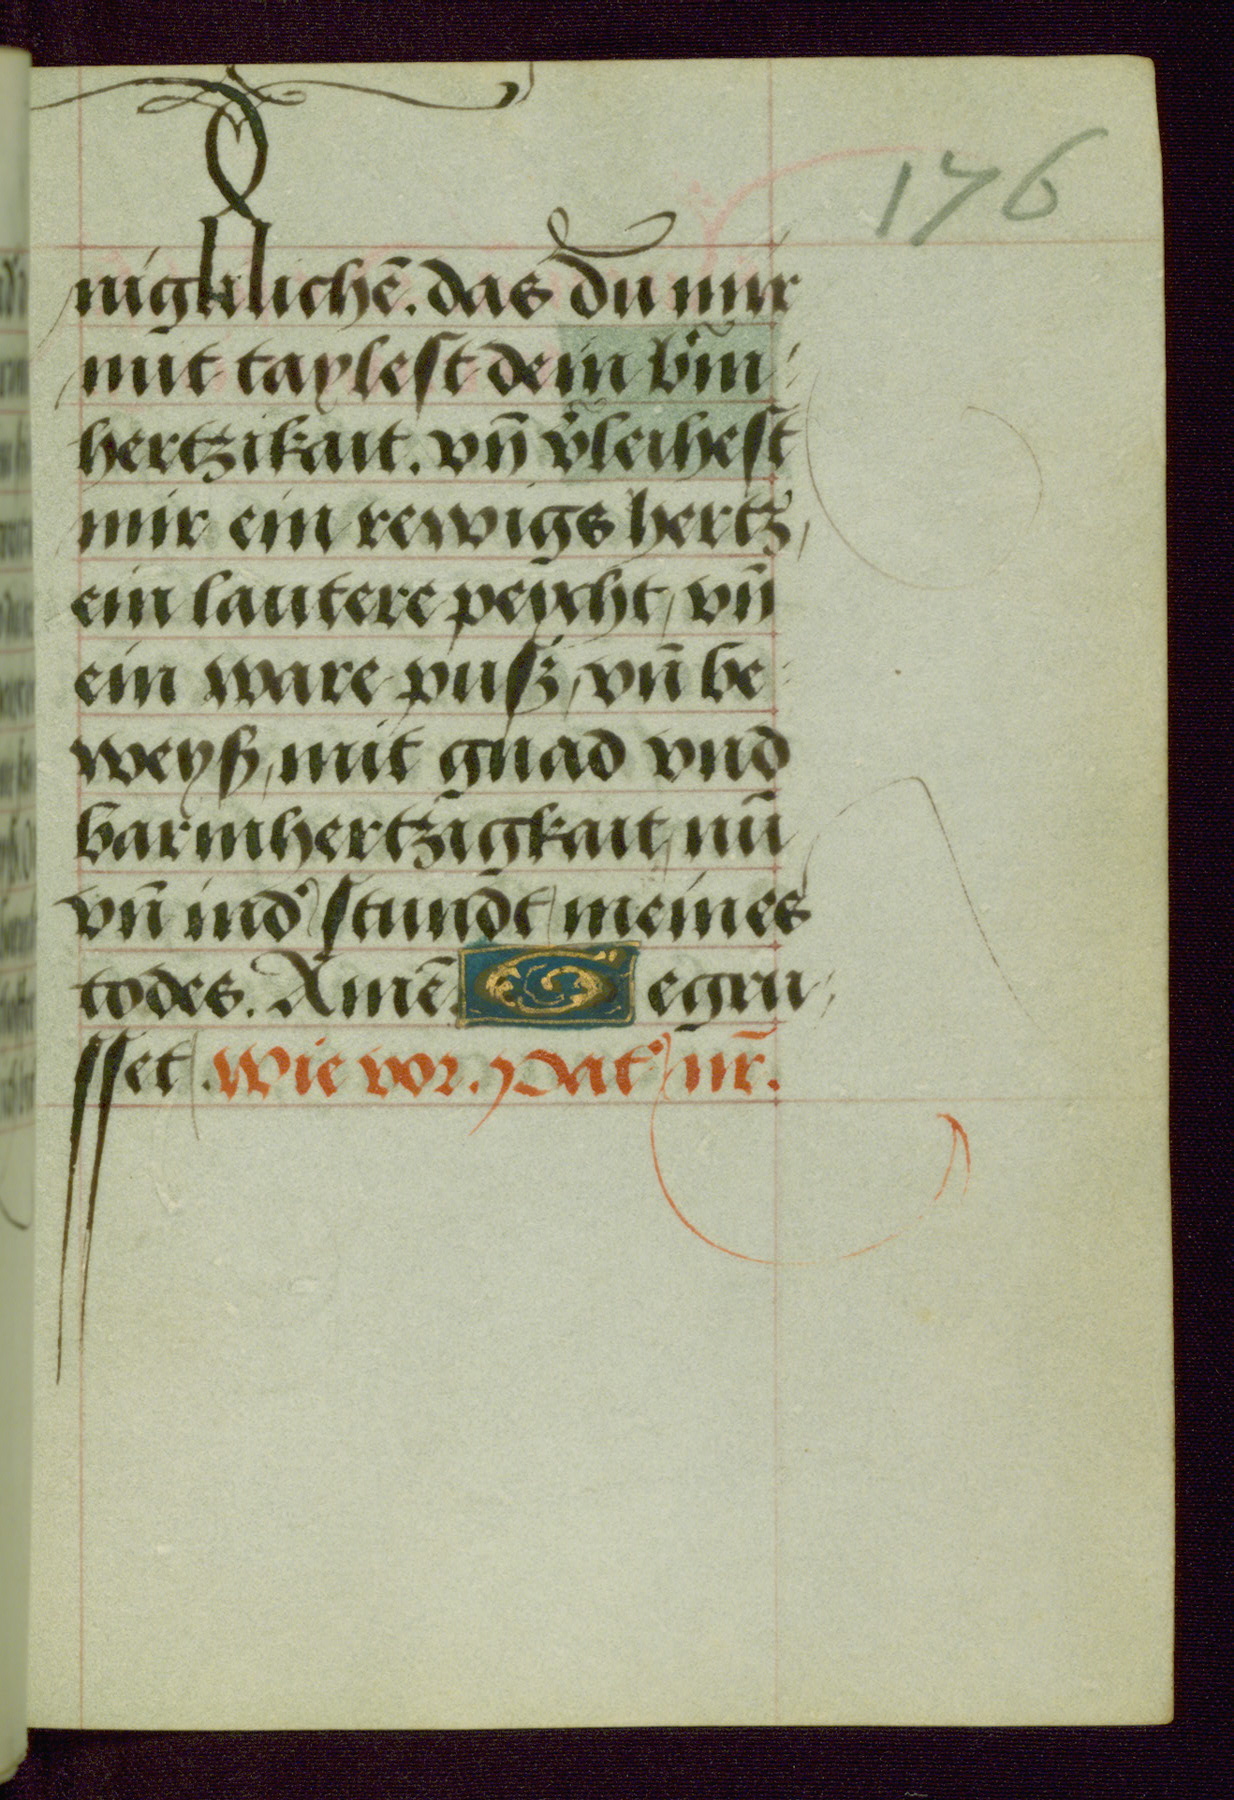 176
nigklichē. das du mir
mit taylest dein bm̄
hertzikait. vn̄ v̄leihest
mir ein rewigs hertz,
ein lautere peycht, vn̄
ein ware pusz, vn̄ be
weysz, mit gnad vnd
barmhertzigkait, nū
vn̄ ind' stundt meines
todes. Amē. G egru
sset. Wie vor. Pat' nr̄.